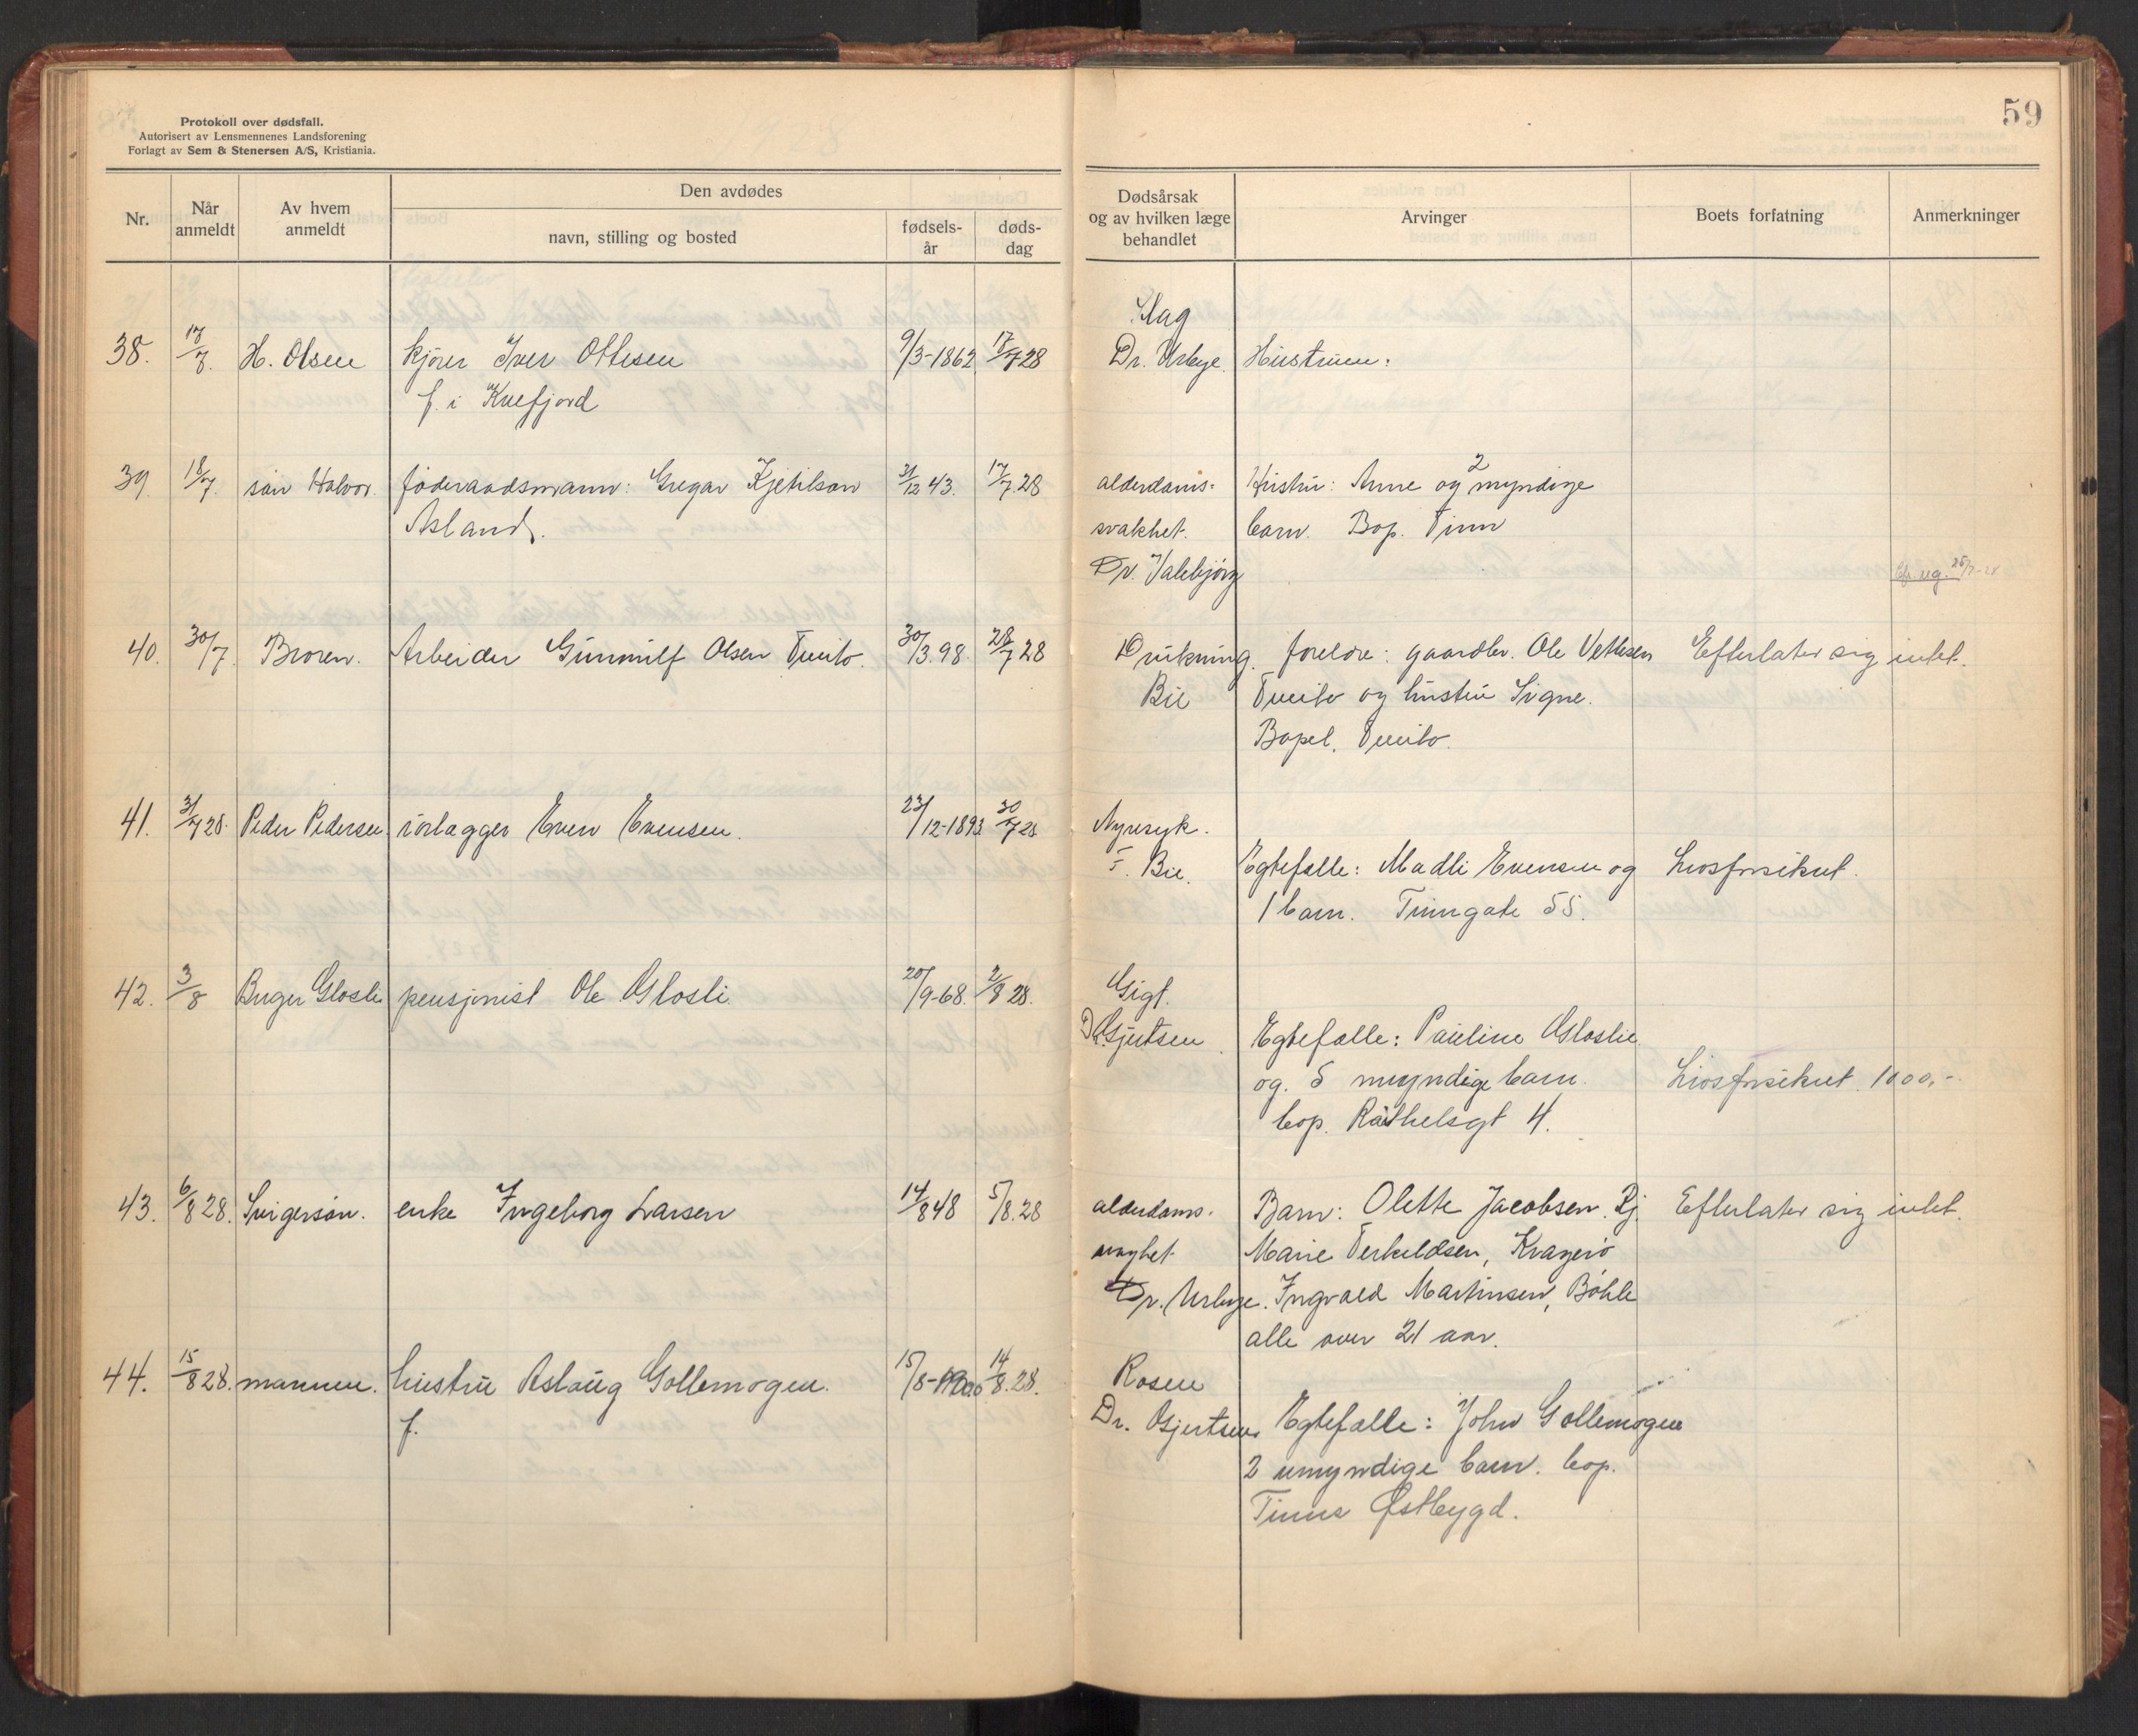 Protokoll over dødsfall.
Autorisert av Lensmennenes Landsforening
Forlagt av Sem & Stenersen A/S, Kristiania.
59
Nr.
Når anmeldt
Av hvem anmeldt
Den avdødes
navn, stilling og bosted
fødsels-år
døds-dag
Dødsårsak og av hvilken læge behandlet
Arvinger
Boets forfatning
Anmerkninger
Slag
38. 17/7. H. Olsen kjører Iver Ottesen 9/3-1862 17/7 28 Dr. Urbye. Hustruen:
f. i Kvefjord
39. 18/7. søn Halvor. føderaadsmann: Gregar Kjetilson 31/12 43. 17/7.28 alderdoms- Hustru: Anne og 2 myndige
Asland. svakhet. barn. Bop. Tinn
Dr. Valebjørg
25/7-28
40. 30/7. Broren. Arbeider Gunnulf Olsen Tveito. 30/3.98. 28/7 28 Drukning. foreldre: gaardbr. Ole Vetlesen Efterlater sig intet.
Bie Tveito og hustru Signe.
Bopel. Tveito.
41. 31/7 28. Peder Pedersen rørlægger Even Evensen. 23/12-1893 30/7 28 Nyresyk.
Bie. Egtefælle: Madli Evensen og Livsforsikret.
1 barn. Tinngate 55.
42. 3/8 Birger Glosli pensjonist Ole Glosli. 20/9-68. 2/8 28. Gigt.
Dr. Gjertsen Egtefælle: Pauline Gloslie
og. 5 myndige barn. Livsforsikret. 1000,-
bop. Råthelsgt 4.
43. 6/8 28. Svigersøn. enke Ingeborg Larsen 14/8 48 5/8.28 alderdoms- Barn: Olette Jacobsen. Rj. Efterlater sig intet.
svaghet Marie Terkeldsen, Kragerø
Dr. Urbye. Ingvald Martinsen, Bøhle
alle over 21 aar.
44. 15/8 28. mannen. hustru Aslaug Gollemogen. 15/8-1900 14/8.28. Rosen
f. Dr. Gjertsen Egtefælle: John Gollemogen
2 umyndige barn. bop.
Tinns Østbygd.